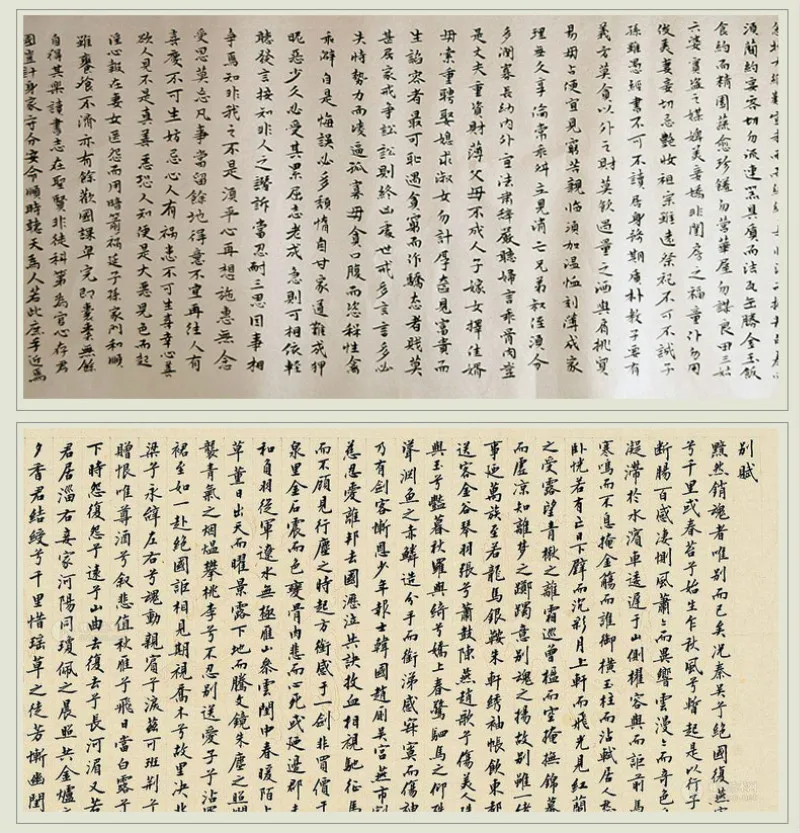 須簡約宴客切勿流連器具質而潔瓦缶勝金玉飯
食約而精園蔬愈珍饈勿營華屋勿謀良田三姑
六婆實盜之媒婢美妾嬌非閨房之福童仆勿用
俊美妻妾切忌艷妝祖宗雖遠祭祀不可不誠子
孫雖愚經書不可不讀居身務期質朴教子要有
義方莫貪以外之財莫飲過量之酒與肩挑貿
易毋占便宜見窮苦親臨須加溫恤刻薄成家
理無久享倫常乖舛立見消亡兄弟叔侄須分
多潤寡長幼內外宜法肅辭嚴聽婦言乖骨肉豈
是丈夫重資財薄父母不成人子嫁女擇佳婿
毋索重聘娶媳求淑女勿計厚奩見富貴而
生諂容者最可恥遇貧窮而作驕態者賤莫
甚居家戒爭訟訟則終凶處世戒多言言多必
失恃勢力而凌逼孤寡毋貪口腹而恣殺牲禽
乖僻自是悔誤必多頹惰自甘家道難成狎
昵惡少久必受其累屈志老成急則可相依輕
聽發言按知非人之譖訴當忍耐三思因事相
爭焉知非我之不是須平心再想施惠無念
受恩莫忘凡事當留餘地得意不宜再往人有
喜慶不可生妒忌心人有禍患不可生喜幸心善
欲人見不是真善惡恐人知便是大惡見色而起
淫心報在妻女匿怨而用暗箭禍延子孫家門和順
雖饔飧不濟亦有餘歡國課早完即囊橐無餘
自得其樂讀書志在聖賢非徒科第為官心存君
國豈計身家守分安命順時聽天為人若此庶乎近焉
別賦
黯然銷魂者唯別而已矣況秦吳兮絕國復燕宋
兮千里或春苔兮始生乍秋風兮暫起是以行子
斷腸百感凄惻風蕭蕭而異響雲漫漫而奇色
凝滯於水濱車逶遲于山側櫂容與而詎前馬
寒鳴而不息掩金觴而誰御橫玉柱而沾軾居人愁
臥怳若有亡日下壁而沉彩月上軒而飛光見紅蘭
之受露望青楸之離霜巡曾楹而空掩撫錦幕
而虛涼知離夢之躑躅意別魂之揚故別雖一緒
事乃萬族至若龍馬銀鞍朱軒繡袖帳飲東都
送客金谷琴羽張兮蕭鼓陳燕趙歌兮傷美人
與玉兮艷暮秋羅與綺兮嬌上春驚駟馬之仰秣
聳淵魚之赤鱗造分手而銜涕感寂寞而傷神
乃有劍客慚恩少年報士韓國趙廁吳宮燕市割
慈忍愛離邦去國瀝泣共訣抆血相視驅征馬
而不顧見行塵之時起方銜感于一劍非買價于
泉里金石震而色變骨肉悲而心死或乃邊郡未
和負羽從軍遼水無極雁山參雲閨中春暖陌上
草薰日出天而曜景露下地而騰文鏡朱塵之照爛
襲青氣之烟煴攀桃李兮不忍別送愛子兮沾羅
裙至如一赴絕國詎相見期視喬木兮故里決北
梁兮永辭左右兮魂動親賓兮淚滋可班荊兮
贈恨唯尊酒兮敘悲值秋雁兮飛日當白露兮
下時怨復怨兮遠兮山曲去復去兮長河湄又若
君居淄右妾家河陽同瓊佩之晨照共金爐
夕香君結綬兮千里惜瑤草之徒芳慚幽閨